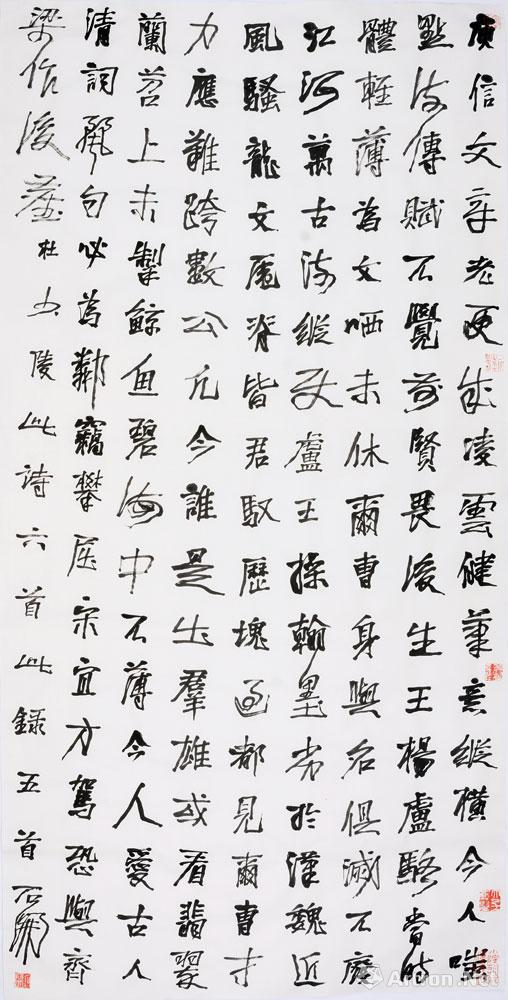 庾信文章老更成凌雲健筆意縱橫今人嗤
點流傳賦不覺前賢畏後生王楊盧駱當時
體輕薄為文哂未休爾曹身與名俱滅不廢
江河萬古流縱使盧王操翰墨劣於漢魏近
風騷龍文虎脊皆君馭歷塊過都見爾曹才
力應難跨數公凡今誰是出羣雄或看翡翠
蘭苕上未掣鯨魚碧海中不薄今人愛古人
清詞麗句必為鄰竊攀屈宋宜方駕恐與齊
梁作後塵杜少陵此詩六首此錄五首石
Artron.Net